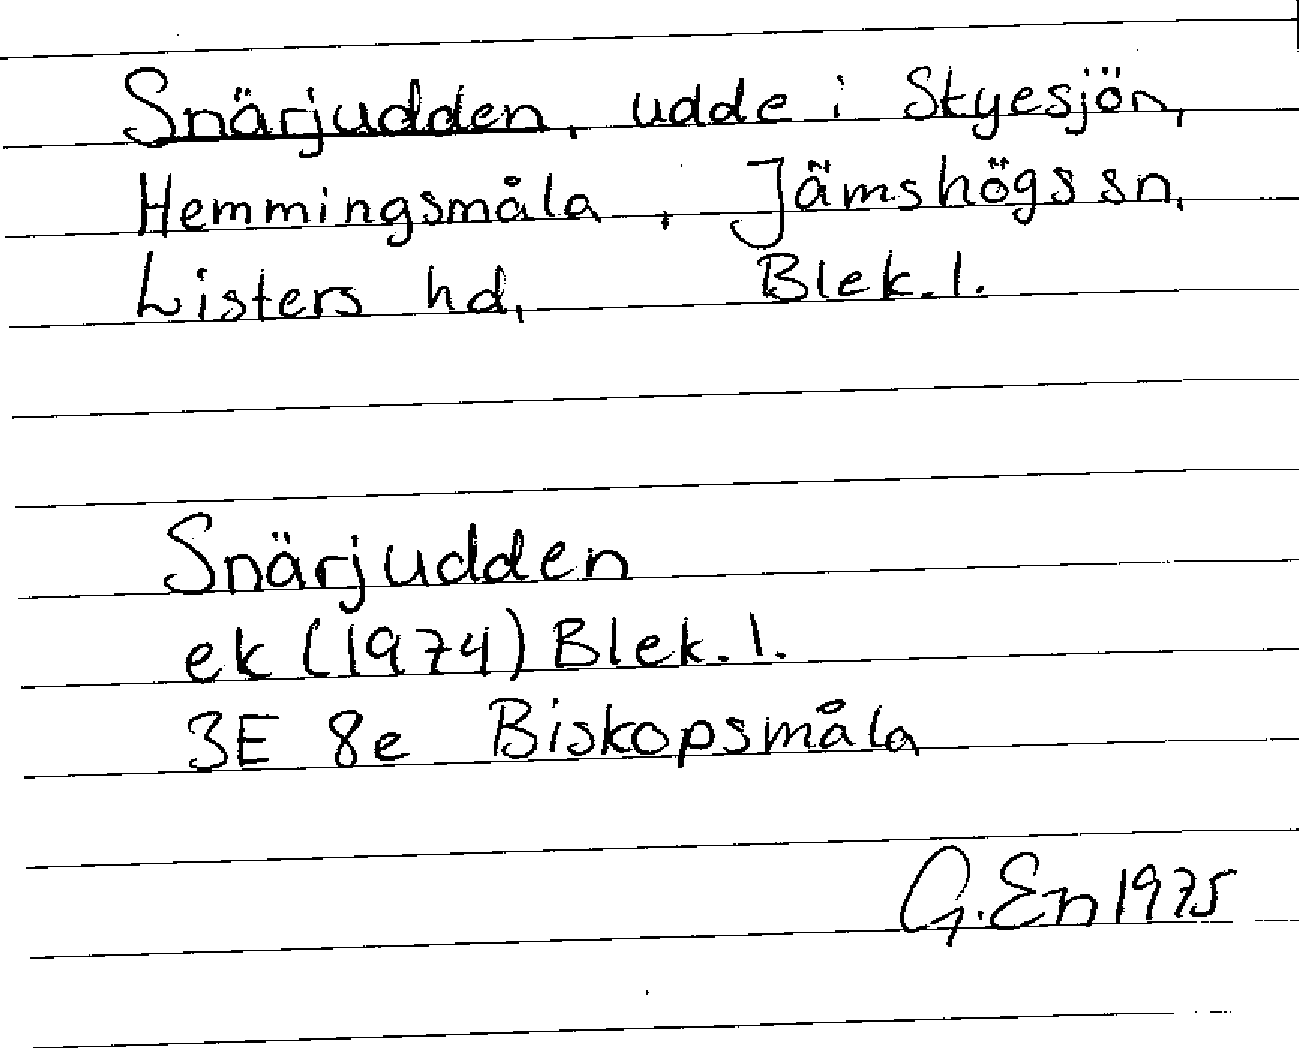 Snärjudden, udde i Skyesjön,
Hemmingsmåla, Jämshögs sn,
Listers hd, Blek. l.
Snärjudden
ek (1974) Blek. l.
3E 8e Biskopsmåla
G. En 1975